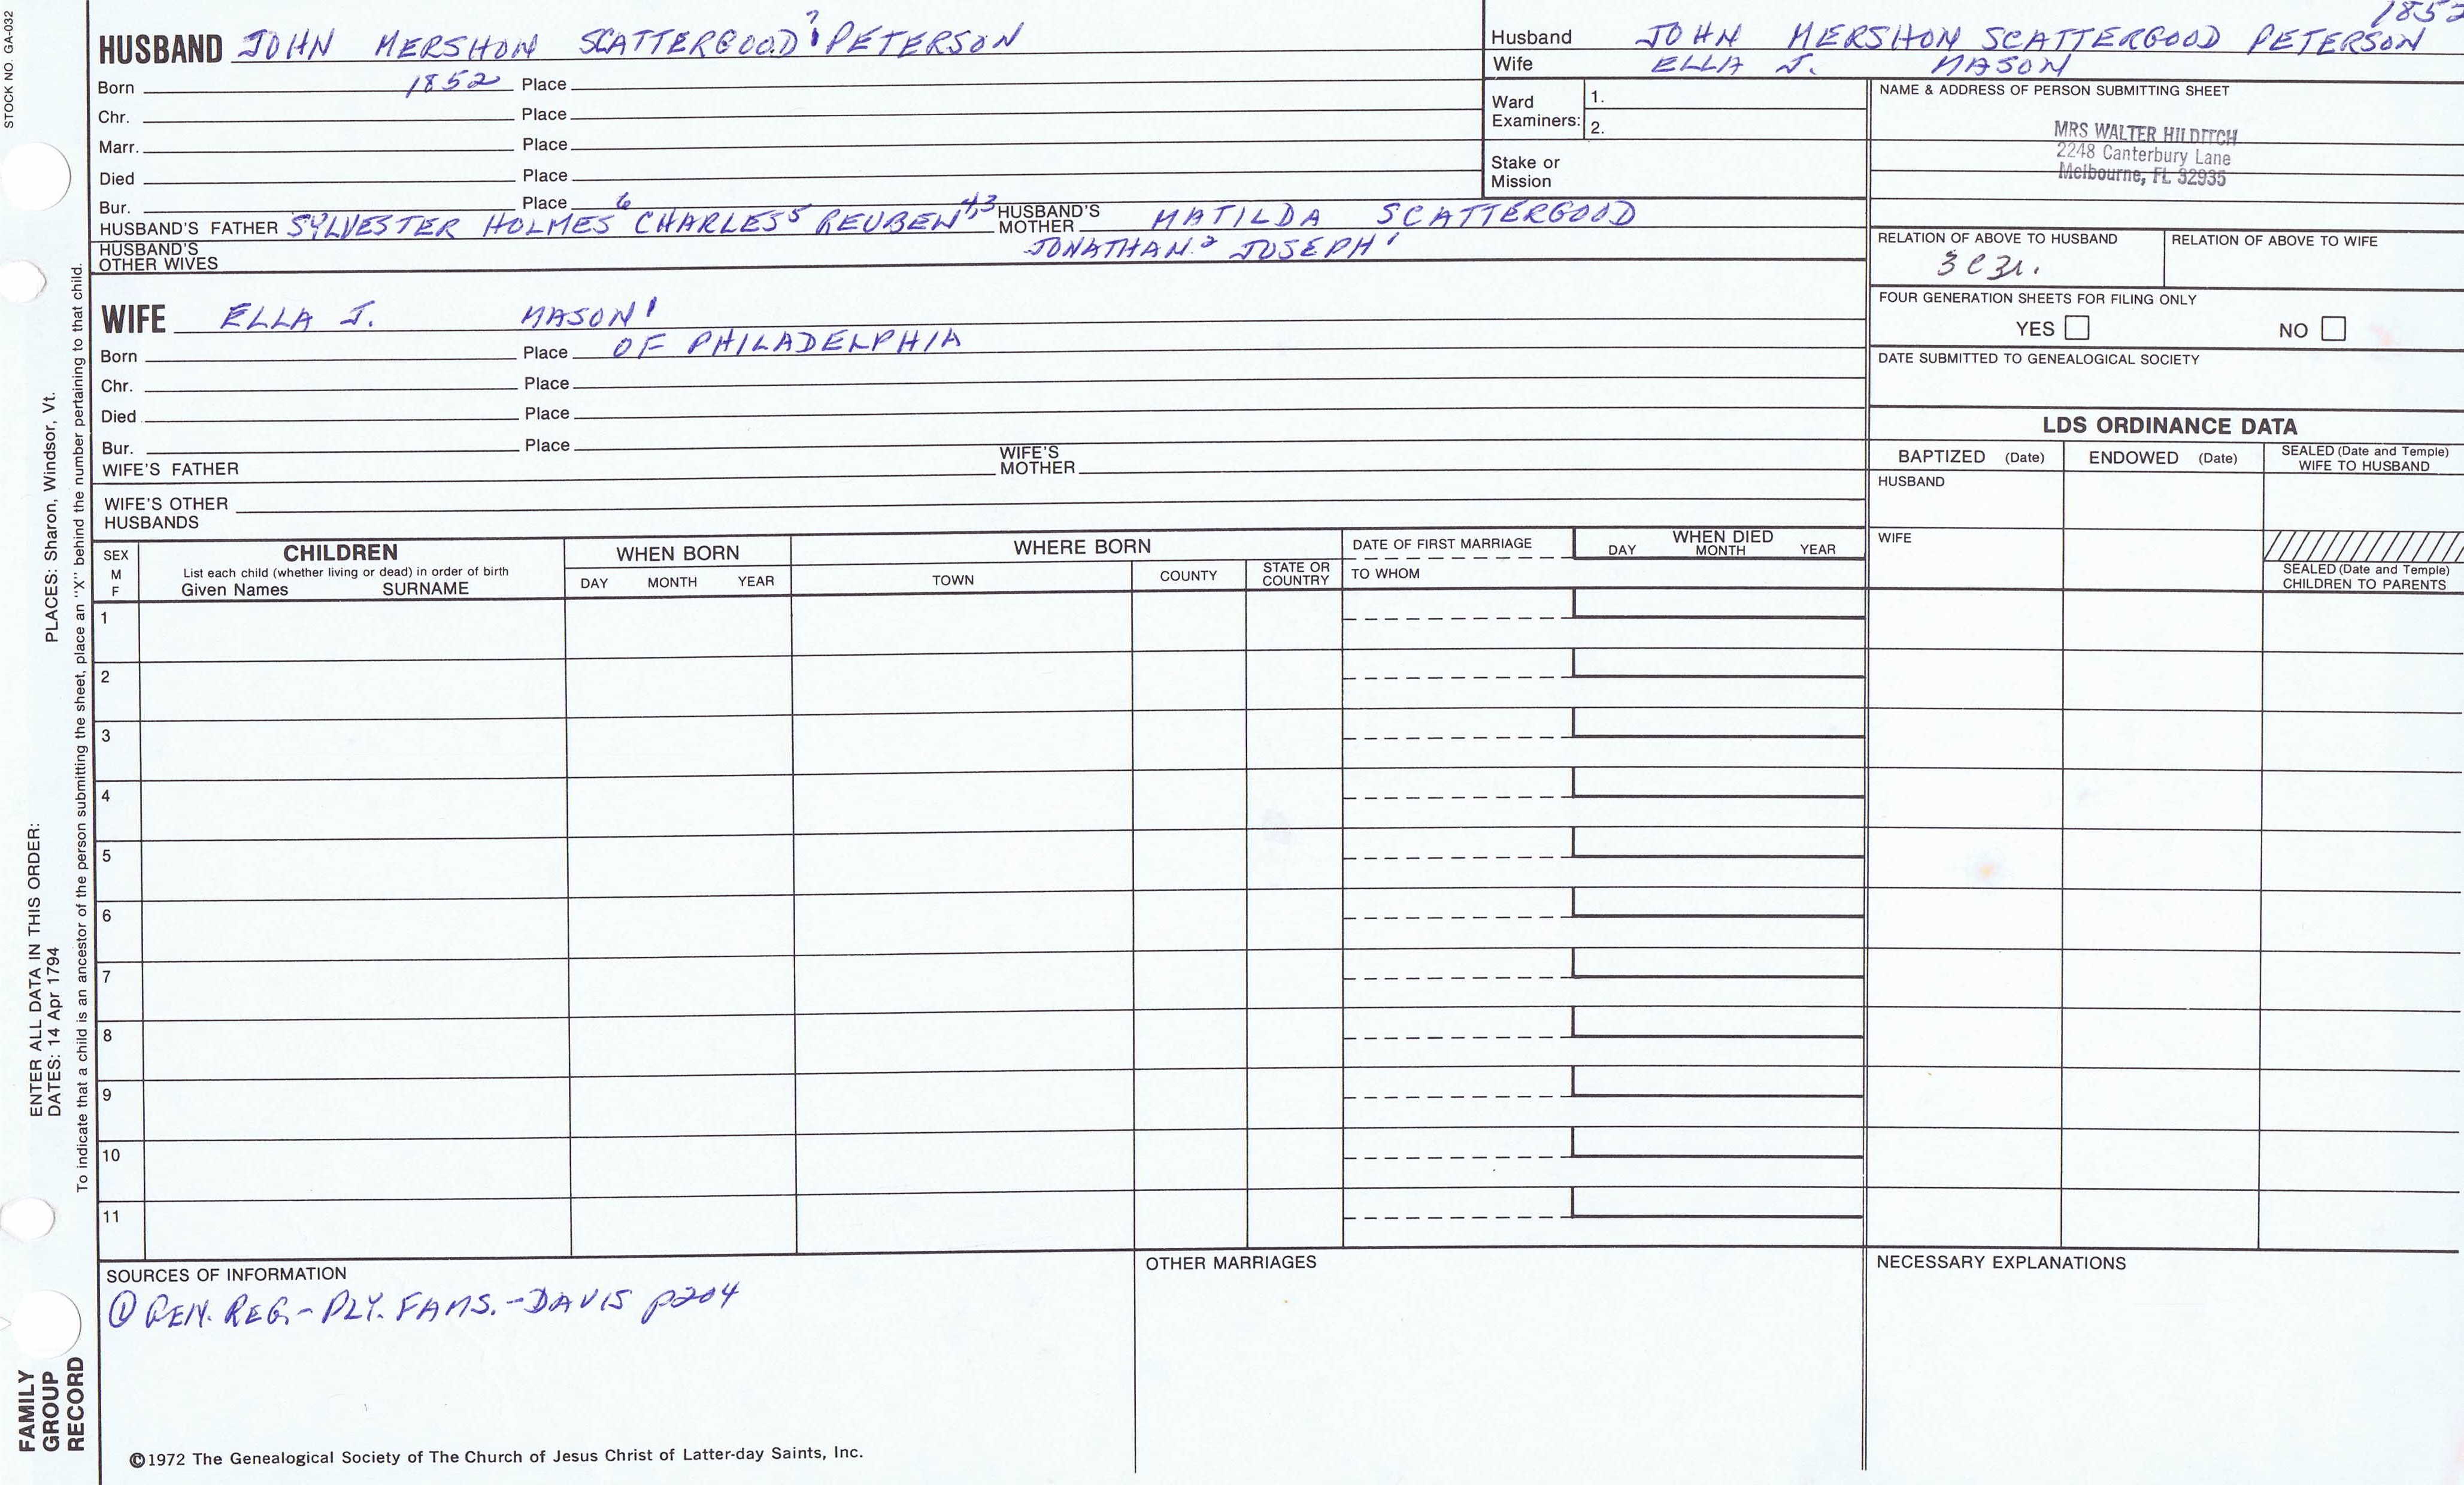 STOCK NO. GA-032
1852
HUSBAND JOHN MERSHON SCATTERGOOD 7 1 PETERSON
Born 1852 Place
Chr. Place
Marr. Place
Died Place
Bur. Place
HUSBAND'S FATHER SYLVESTER HOLMES 6 CHARLES 5 REUBEN 4,3 HUSBAND'S MOTHER MATILDA SCATTERGOOD
JONATHAN 2 JOSEPH 1
HUSBAND'S OTHER WIVES
WIFE ELLA J. MASON 1
Born Place OF PHILADELPHIA
Chr. Place
Died Place
Bur. Place
WIFE'S FATHER WIFE'S MOTHER
WIFE'S OTHER HUSBANDS
Husband JOHN MERSHON SCATTERGOOD PETERSON
Wife ELLA J. MASON
Ward Examiners: 1.
2.
Stake or Mission
NAME & ADDRESS OF PERSON SUBMITTING SHEET
MRS WALTER HILDITCH
2248 Canterbury Lane
Melbourne, FL 32935
RELATION OF ABOVE TO HUSBAND RELATION OF ABOVE TO WIFE
FOUR GENERATION SHEETS FOR FILING ONLY
YES NO
DATE SUBMITTED TO GENEALOGICAL SOCIETY
LDS ORDINANCE DATA
BAPTIZED (Date) ENDOWED (Date) SEALED (Date and Temple) WIFE TO HUSBAND
HUSBAND
WIFE
SEALED (Date and Temple) CHILDREN TO PARENTS
SEX M F
CHILDREN
List each child (whether living or dead) in order of birth
Given Names SURNAME
WHEN BORN
DAY MONTH YEAR
WHERE BORN
TOWN COUNTY STATE OR COUNTRY
DATE OF FIRST MARRIAGE
TO WHOM
WHEN DIED
DAY MONTH YEAR
1
2
3
4
5
6
7
8
9
10
11
SOURCES OF INFORMATION
① GEN. REG.-PLY. FAMS.-DAVIS p204
OTHER MARRIAGES
NECESSARY EXPLANATIONS
©1972 The Genealogical Society of The Church of Jesus Christ of Latter-day Saints, Inc.
ENTER ALL DATA IN THIS ORDER:
DATES: 14 Apr 1794 PLACES: Sharon, Windsor, Vt.
To indicate that a child is an ancestor of the person submitting the sheet, place an "X" behind the number pertaining to that child.
FAMILY
GROUP
RECORD